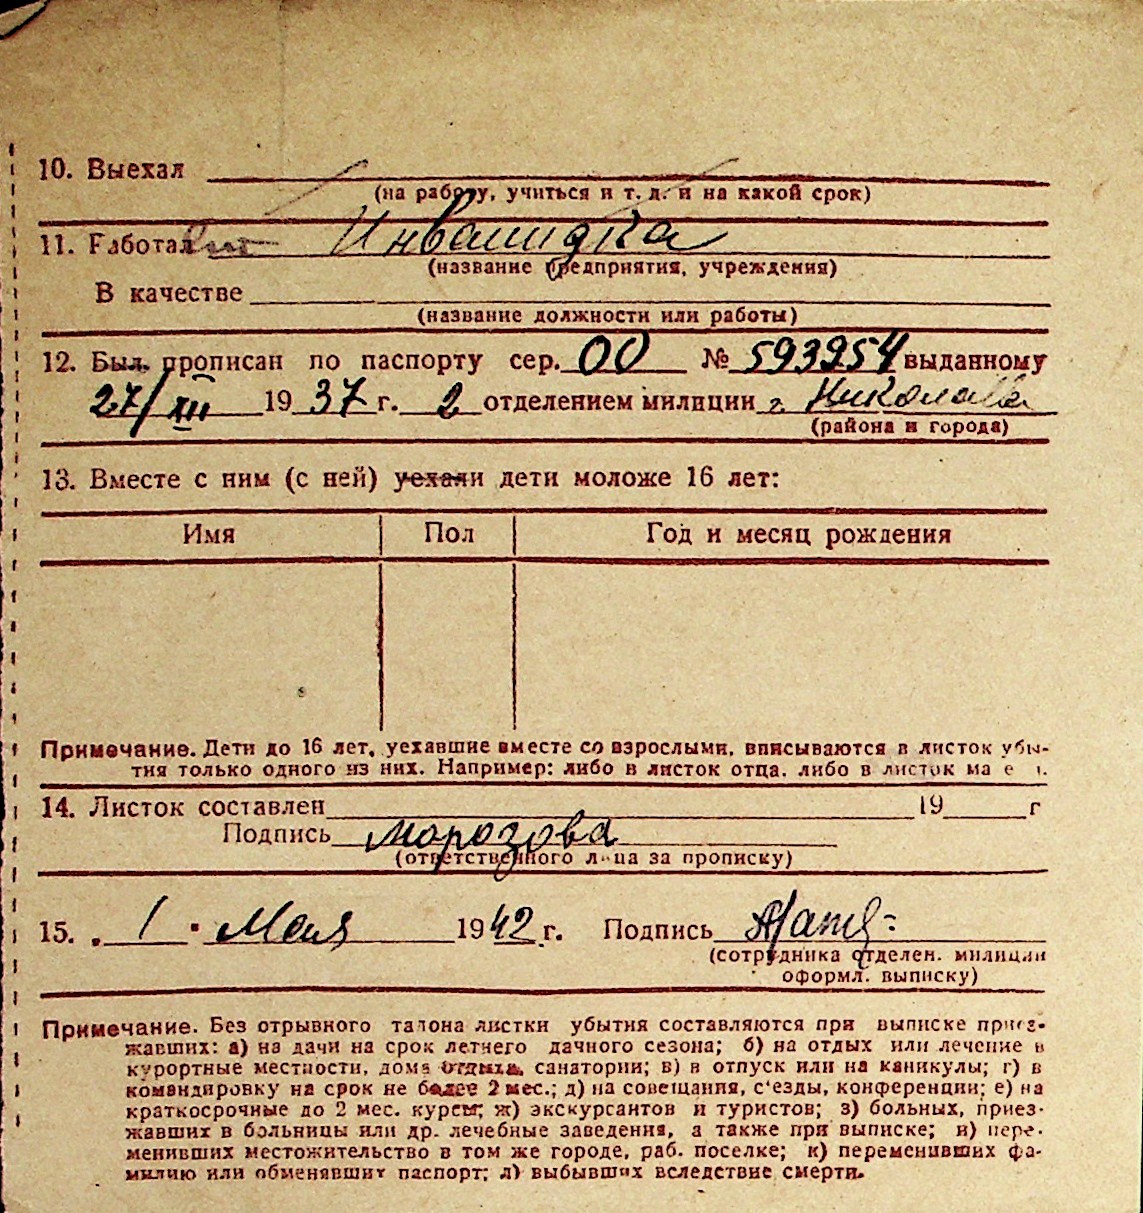 10. Выехал
(на работу, учиться и т. д. и на какой срок)
11. Работал Инвалидка
(название предприятия, учреждения)
В качестве
(название должности или работы)
12. Был прописан по паспорту сер. 00 № 593254 выданному
27/XII 1937 г. 2 отделением милиции г. Николаева
(района и города)
13. Вместе с ним (с ней) уехали дети моложе 16 лет:
Имя Пол Год и месяц рождения
Примечание. Дети до 16 лет, уехавшие вместе со взрослыми, вписываются в листок убы-
тия только одного из них. Например: либо в листок отца, либо в листок ма е и.
14. Листок составлен 19 г
Подпись Морозова
(ответственного лица за прописку)
15. „ 1 " Мая 1942 г. Подпись
(сотрудника отделен. милиции
оформл. выписку)
Примечание. Без отрывного талона листки убытия составляются при выписке приез-
жавших: а) на дачи на срок летнего дачного сезона; б) на отдых или лечение в
курортные местности, дома отдыха, санатории; в) в отпуск или на каникулы; г) в
командировку на срок не более 2 мес.; д) на совещания, с'езды, конференции; е) на
краткосрочные до 2 мес. курсы; ж) экскурсантов и туристов; з) больных, приез-
жавших в больницы или др. лечебные заведения, а также при выписке; и) пере-
менивших местожительство в том же городе, раб. поселке; к) переменивших фа-
милию или обменявших паспорт; л) выбывших вследствие смерти.